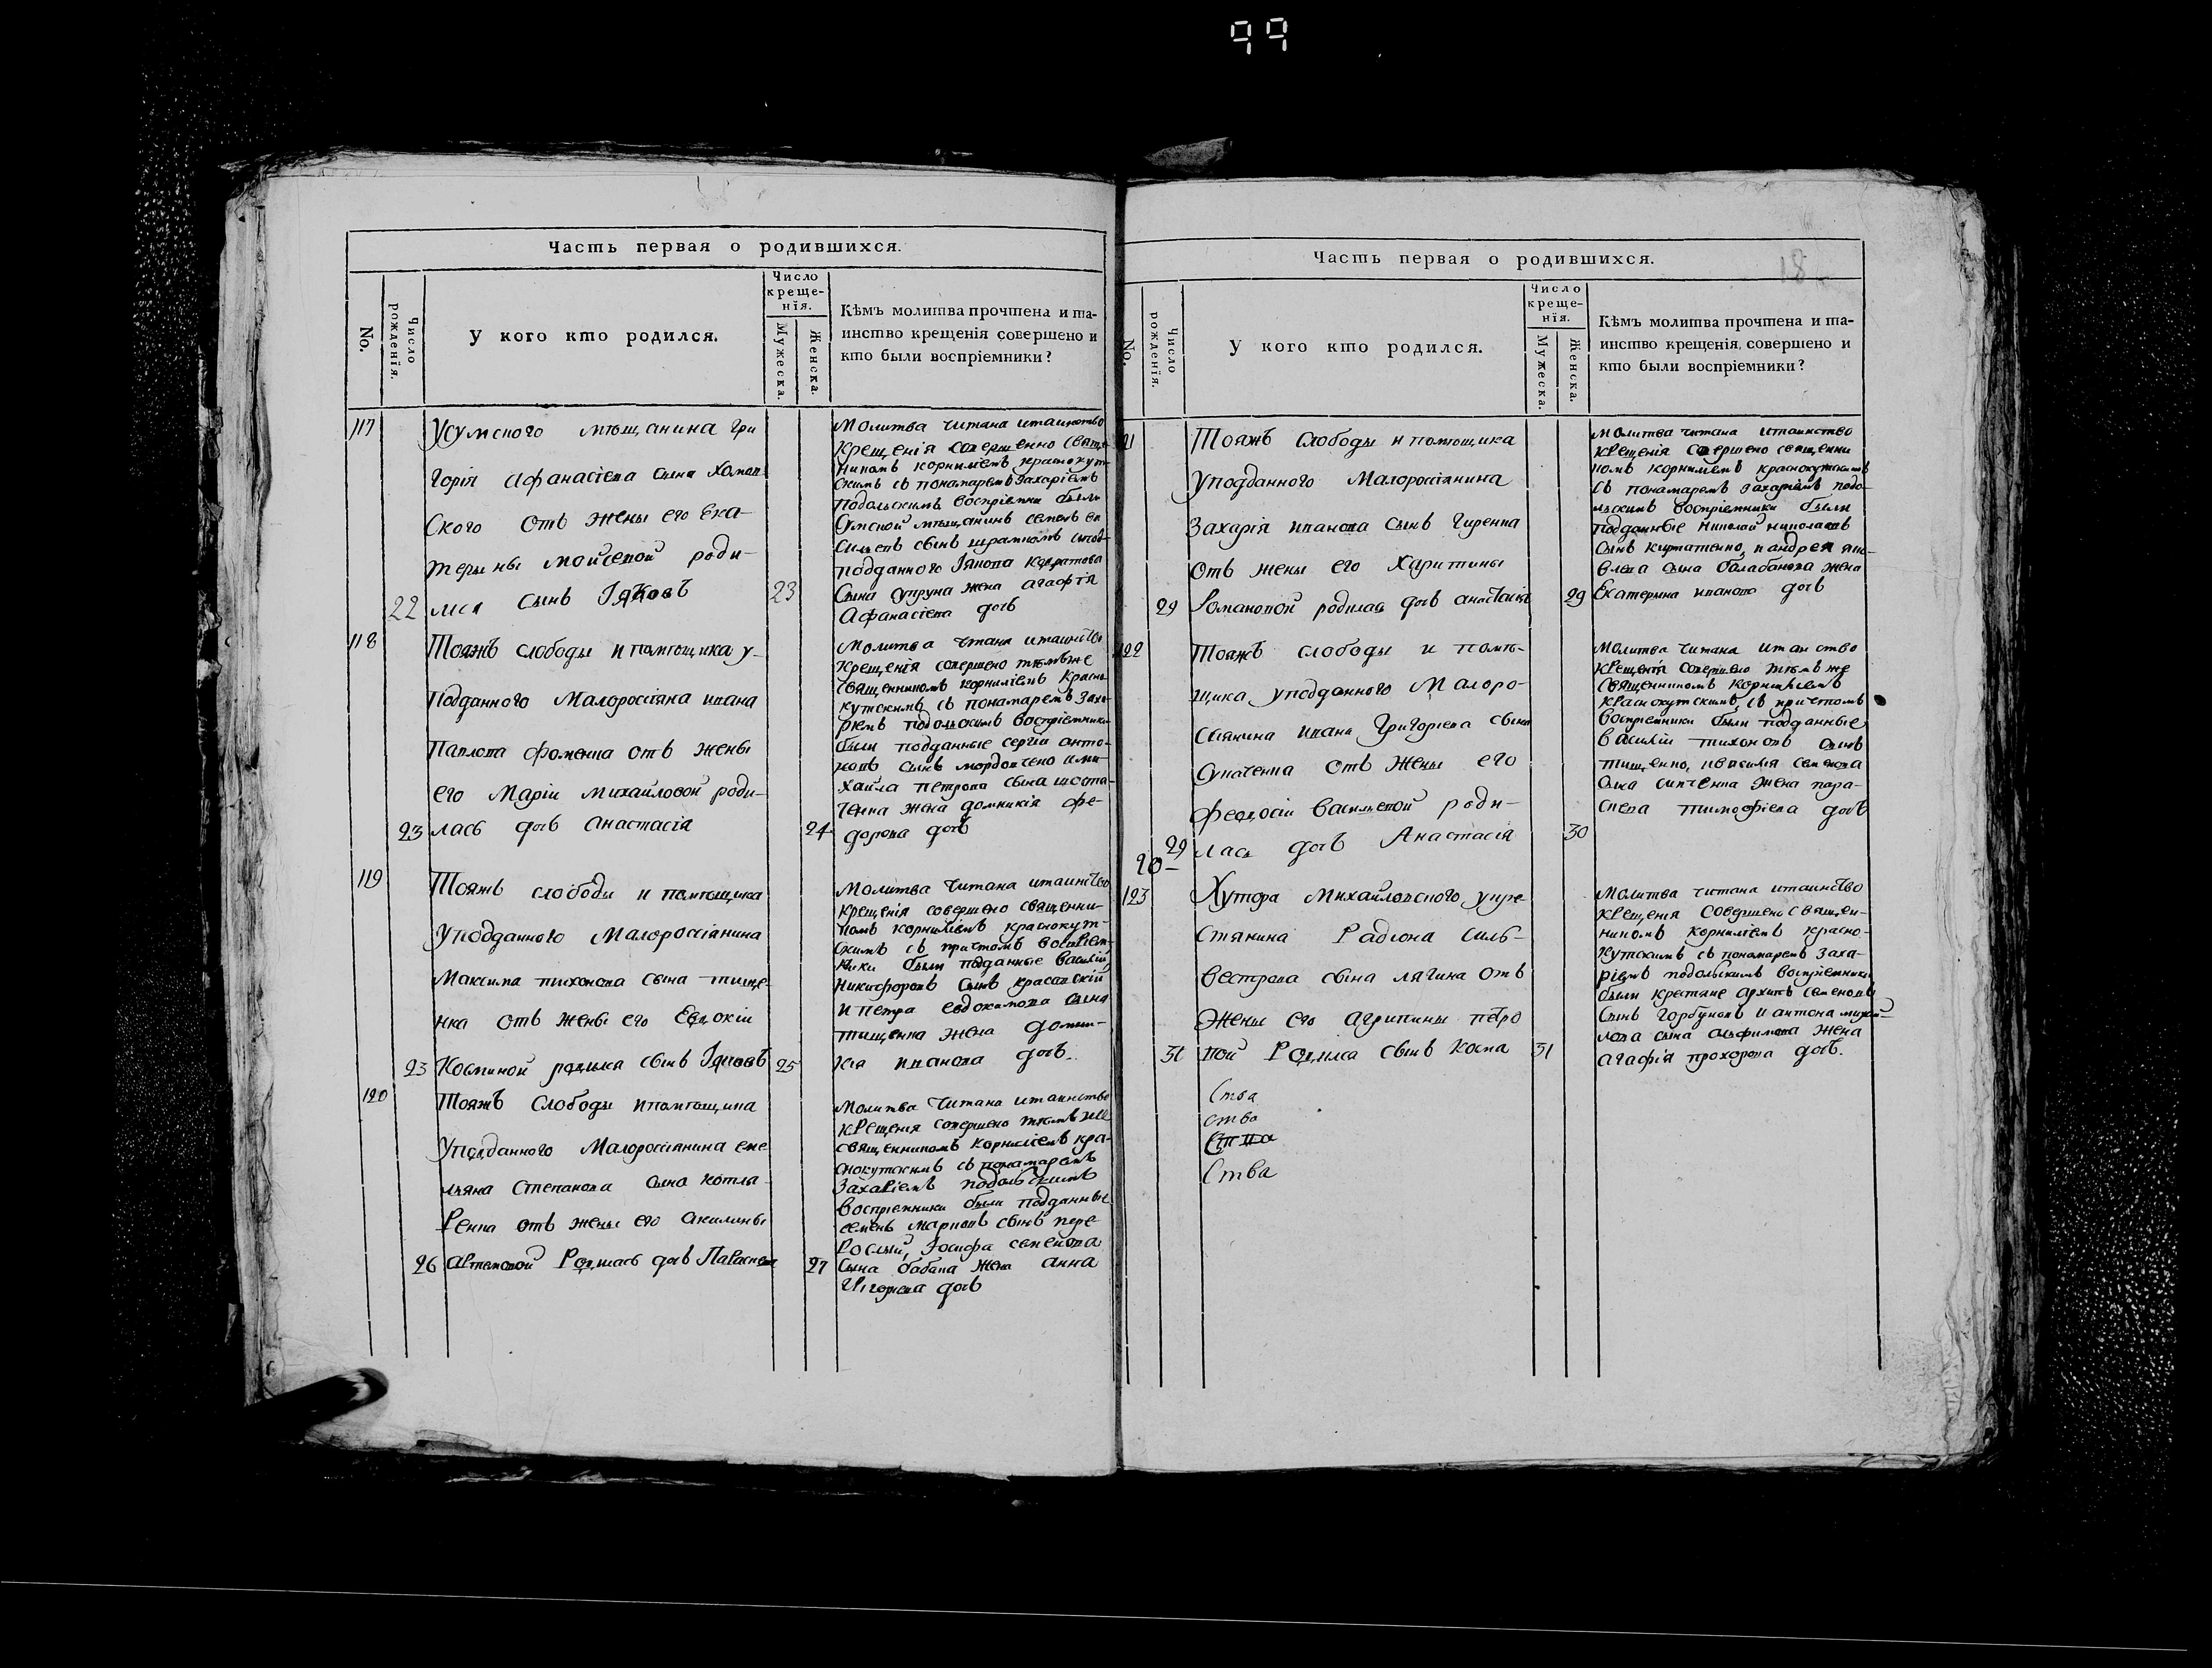 99
Часть первая о родившихся.
No.
Число рожденїя.
У кого кто родился.
Число креще-нїя.
Мужеска.
Женска.
Кѣмъ молитва прочтена и та-
инство крещенія совершено и
кто были воспріемники?
117
Усумского мѣщанина Гри
горія Афанасіева сына Хомен
ского отъ жены его Ека-
терины Мойсеевой роди-
22 лся сынъ Іяковъ 23
Молитва читана итаинство
крещенія совершенно свяще-
никомъ корниліемъ краснокут-
скимъ съ пономаремъ Захаріемъ
подольскимъ воспріемники были
Сумской мѣщанинъ семенъ ва
сильевъ сынъ
подданного Іякова
сына супруна жена агафія
Афанасіева дочь
118
Тояжъ слободы и помѣщика у-
подданного Малоросіяна ивана
павлова фоменка отъ жены
его Маріи Михайловой роди-
23 лась дочь Анастасія 24
Молитва читана итаинство
крещенія совершено тѣмъже
священникомъ корниліемъ красно
кутскимъ съ пономаремъ заха-
ріемъ подольскимъ воспріемники
были подданные сергіи анто-
новъ сынъ ими-
хайла петрова сына шоста-
ченка жена домникія фе-
дорова дочь
119
Тояжъ слободы и помѣщика
Уподданного Малоросіянина
Максима тихонова сына тище
нка отъ жены его Евдокіи
23 Косминой родился сынъ Іяковъ 25
Молитва читана итаинство
крещенія совершено священни-
комъ корниліемъ краснокут-
скимъ съ причтомъ воспріем-
ники были подданные василій
Никифоровъ сынъ красовскій
и петра евдокимова сына
тищенка жена домни-
кія иванова дочь.
120
Тояжъ слободы ипомѣщика
Уподданного Малоросіянина еме
льяна Степанова сына котля-
Ренка отъ жены его акилины
26 Артемовой Родилась дочь Параскева 27
Молитва читана итаинство
крещенія совершено тѣмъ же
священникомъ корниліемъ кра-
снокутскимъ съ пономаремъ
Захаріемъ подольскимъ
воспріемники были подданные
семенъ марковъ сынъ пере-
Рослый, Іосифа семенова
сына бабака жена анна
Игорева дочь
Часть первая о родившихся.
18
No.
Число рожденїя.
У кого кто родился.
Число креще-нїя.
Мужеска.
Женска.
Кѣмъ молитва прочтена и та-
инство крещенія совершено и
кто были воспріемники?
121
Тояжъ слободы и помѣщика
Уподданного Малоросіянина
Захарія иванова сынъ Гиренка
отъ жены его Харитины
29 Романовой родилась дочь анастасія 29
Молитва читана итаинство
крещенія совершено священни
комъ корниліемъ краснокутскимъ
съ пономаремъ захаріемъ подо-
льскимъ воспріемники были
подданные Николай николаевъ
сынъ и андрея яко-
влева сына балабанова жена
Екатерина иванова дочь
122
Тояжъ слободы и помѣ-
щика уподданного Малоро-
сіянина ивана Григоріева сына
отъ жены его
Феодосіи васильевой роди-
29 лась дочь Анастасія 30
20-
Молитва читана итаинство
крещенія совершено тѣмъ же
священникомъ корниліемъ
краснокутскимъ, съ причтомъ
воспріемники были подданные
василій тихоновъ сынъ
тищенко, ивасилія семенова
сына жена пара-
скева тимофіева дочь
123
Хутора Михайловского укре
стянина Радіона силь-
вестрова сына лягина отъ
жены его агрипины петро
31 вой Родился сынъ Косма 31
Молитва читана итаинство
крещенія совершено священ-
никомъ корниліемъ красно-
кутскимъ съ пономаремъ заха-
ріемъ подольскимъ воспріемники
были крестяне архипъ семеновъ
сынъ горбуновъ и антона михай-
лова сына жена
агафія прохорова дочь.
Ства
ства
Ства